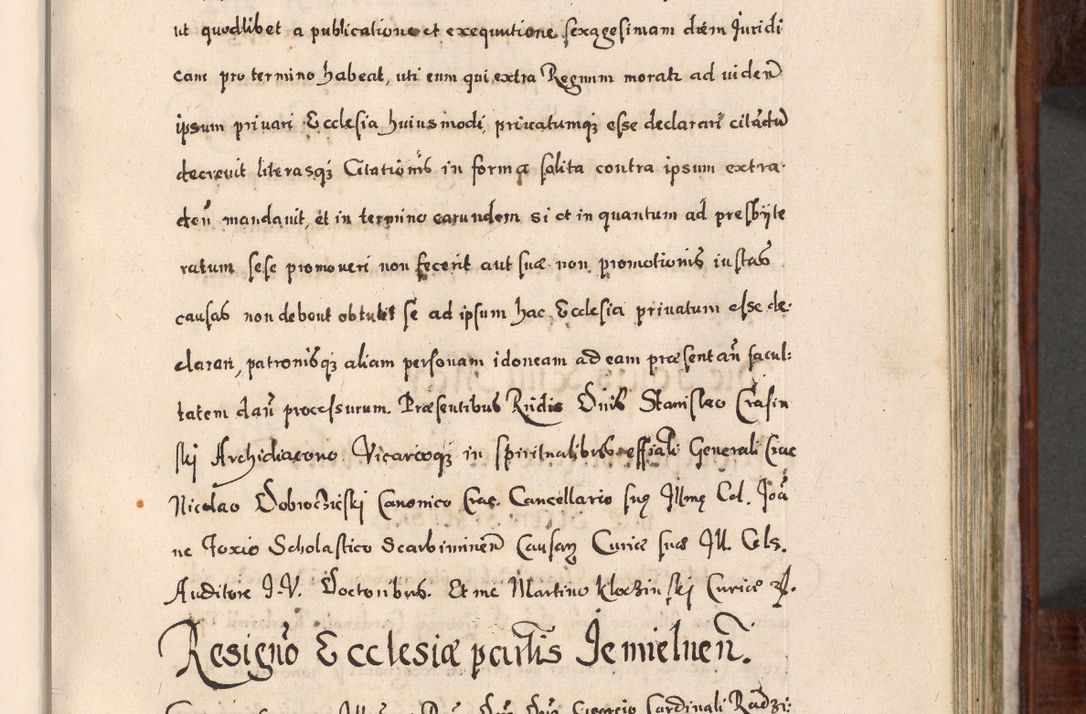 ut quodlibet a publicatione et exequutione sexagesimam diem Juridi
cam pro termino habeat, uti eum qui extra Regnum moratr ad viden̄
ipsum privari Ecclesia huiusmodi, privatumqȝ esse declarari citādū
decrevit literasqȝ Citationis in forma solita contra ipsum extra-
den̄ mandavit, et in termino earundem si et in quantum ad presbÿte
ratum sese promoveri non fecerit aut suæ non promotionis iustas
causas non debent obtulit se ad ipsum hac Ecclesia privatum esse de-
clarari, patronisqȝ aliam personam idoneam ad eam præsentan̄ facul:
tatem dan̄ processurum. Præsentibus Rndis Dnis Stanislao Crasin
skj Archidiacono Vicarioqȝ in spiritualibus effiāli Generali Crac
Nicolao Dobrocziēskj Canonico Crac. Cancellario suę Illmę Cel. Joā
ne Foxio Scholastico Scarbiminen̄ Causaȝ Curiæ suæ Ill. Cels.
Auditore J. V. Doctoribus. Et me Martino Kloczinskj Curiæ
Resigno Ecclesiæ partis Jemielnen̄.
Georgio Cardinali Radzi: